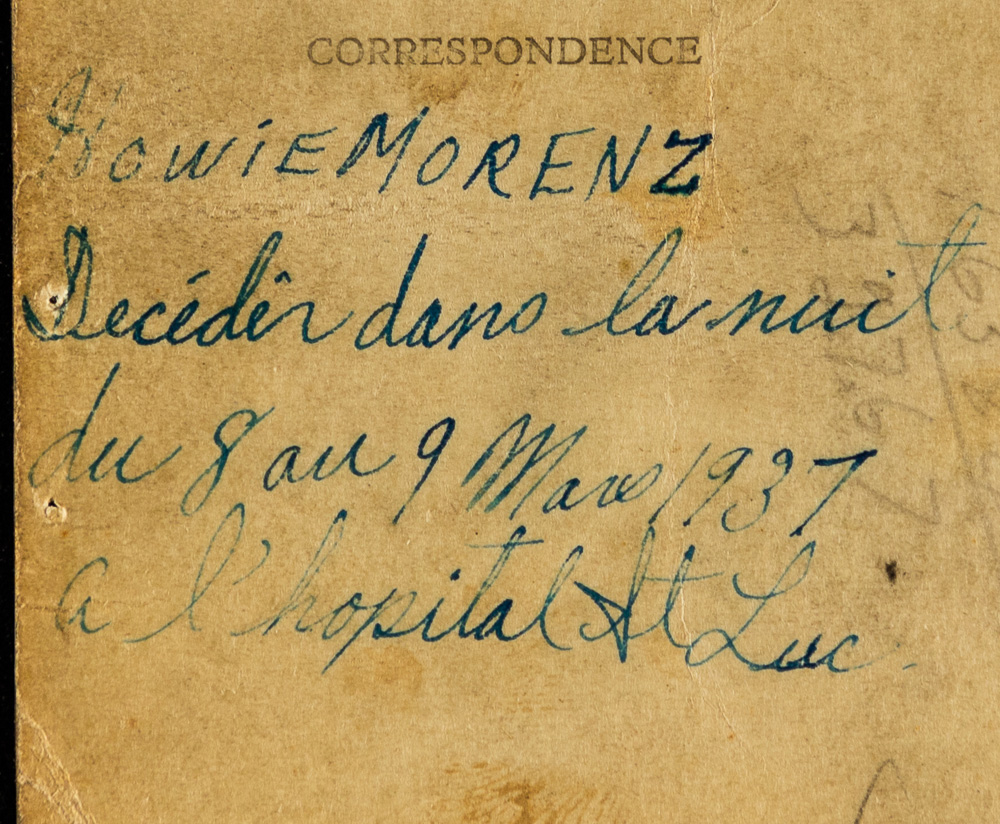 CORRESPONDENCE
HOWIE MORENZ
Decédér dans la nuit
du 8 au 9 Mars 1937
a l'hopital St Luc.